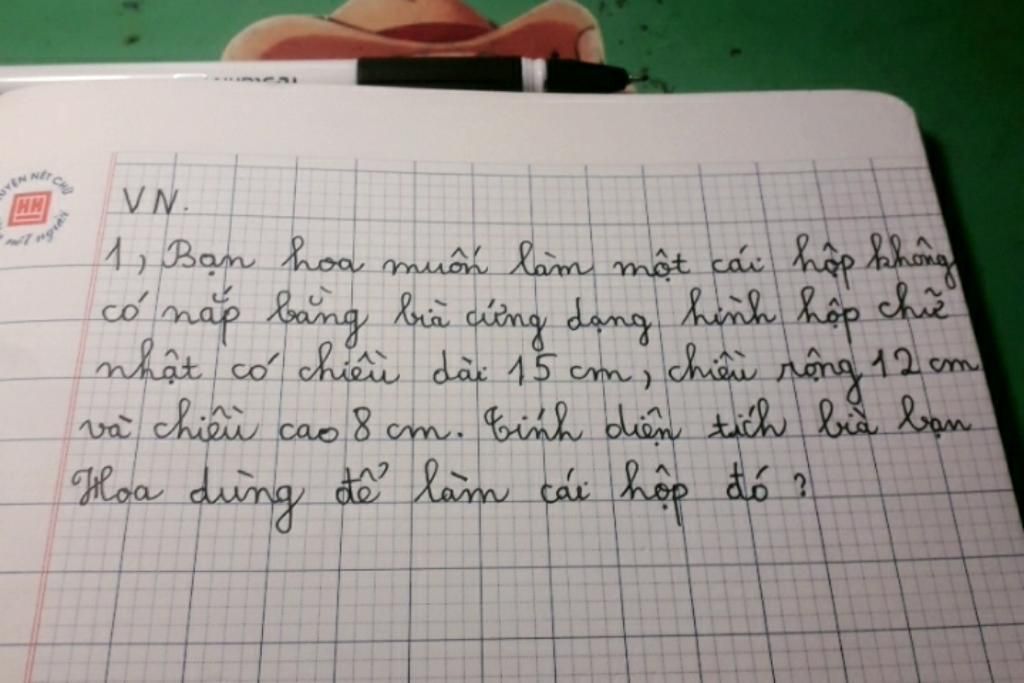 VN.
1, Bạn hoa muốn làm một cái hộp không
có nắp bằng bìa cứng dạng hình hộp chữ
nhật có chiều dài 15 cm, chiều rộng 12 cm
và chiều cao 8 cm. Tính diện tích bìa bạn
Hoa dùng để làm cái hộp đó ?
NÉT CHỮ
HH
nết người